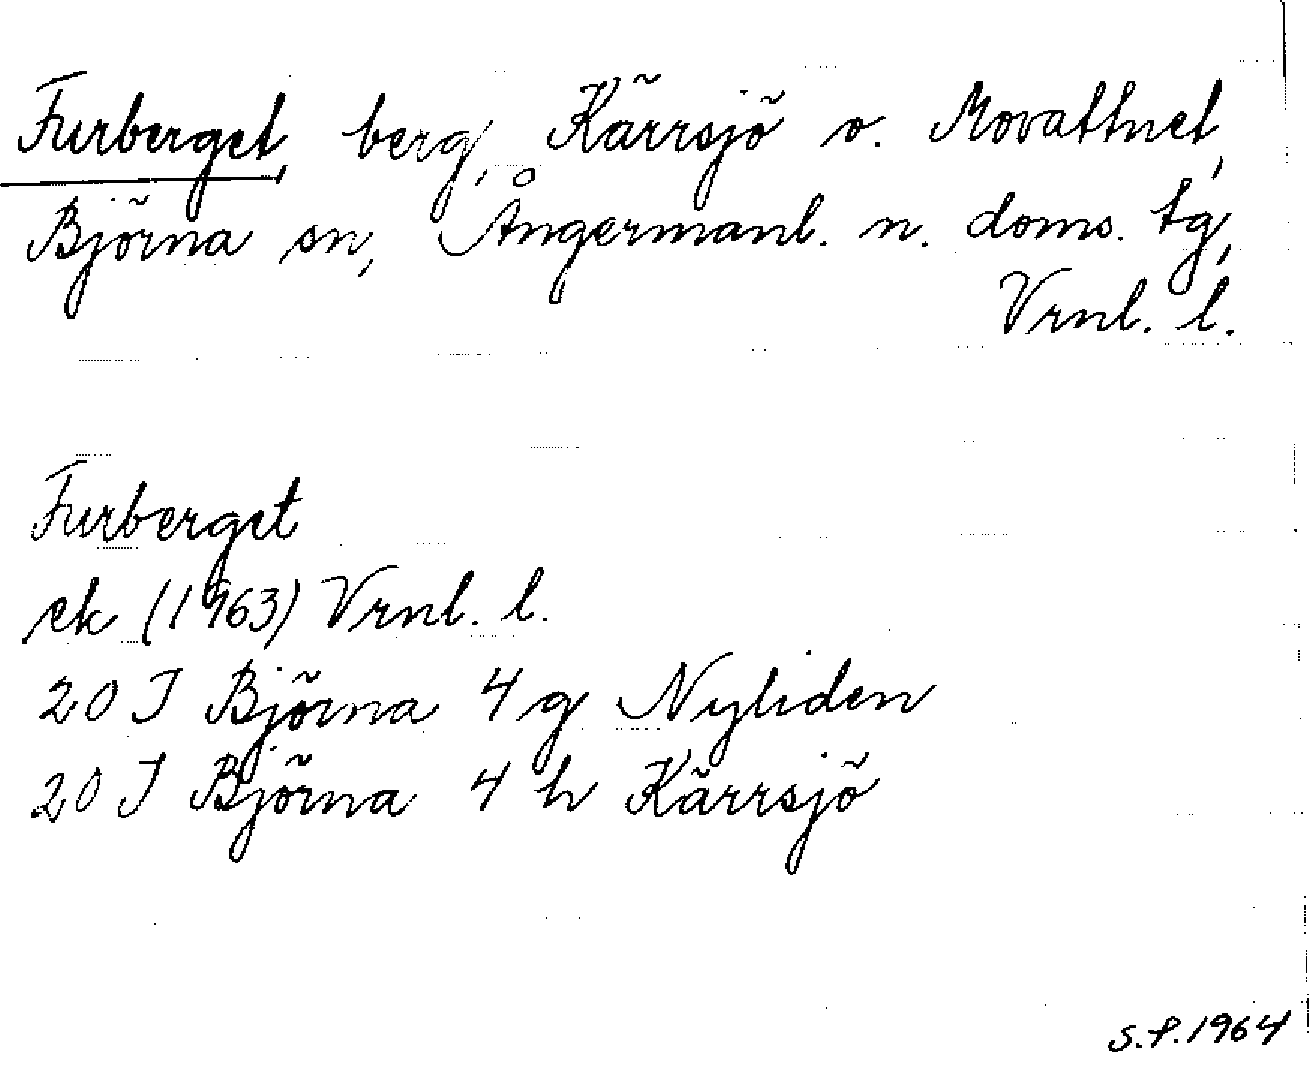 Furberget, berg, Kärrsjö o. Movattnet,
Björna sn, Ångermanl. n. doms. tg,
Vrnl. l.
Furberget
ek (1963) Vrnl. l.
20 I Björna 4 g Nyliden
20 I Björna 4 h Kärrsjö
S.P. 1964